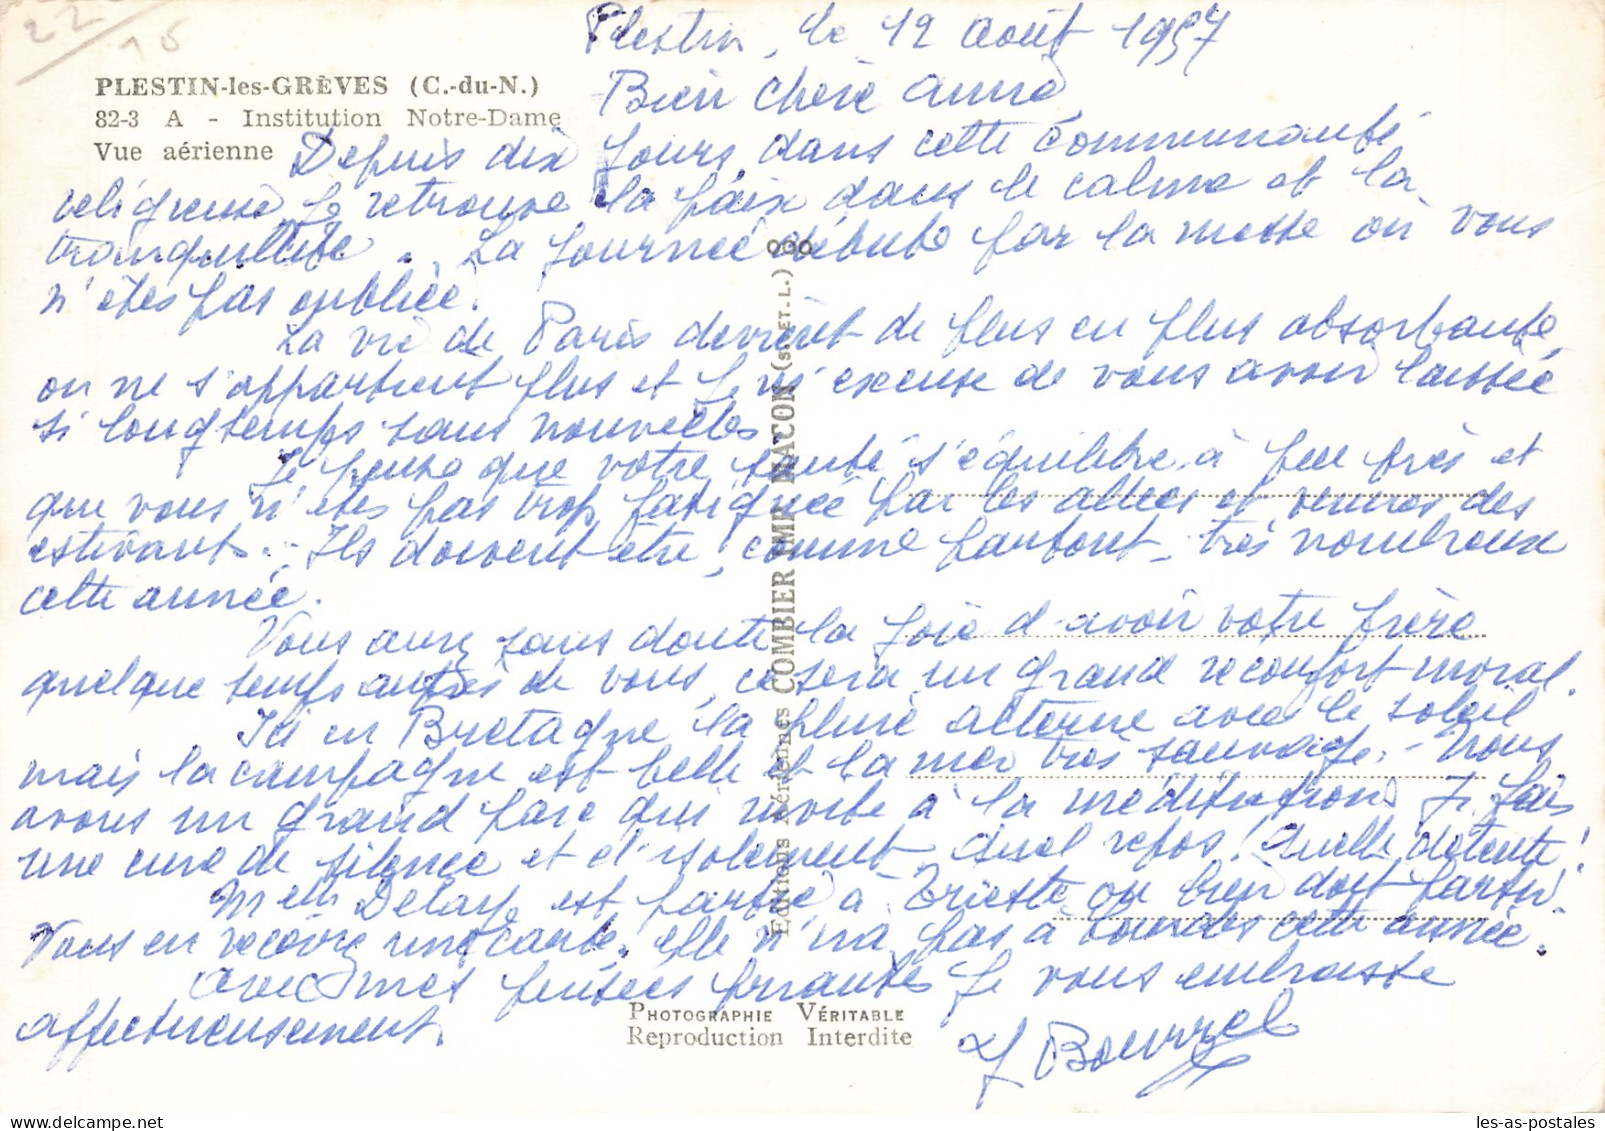 22
15
Plestin, le 12 août 1957
PLESTIN-les-GRÈVES (C.-du-N.)
82-3 A - Institution Notre-Dame
Vue aérienne
Bien chère
Depuis dix jours, dans cette communauté
religieuse, je retrouve la paix dans le calme et la
tranquillité. La journée débute par la messe où vous
n'êtes pas oubliée.
La vie de Paris devient de plus en plus absorbante,
on ne s'appartient plus et je m'excuse de vous avoir laissée
si longtemps sans nouvelles.
Je pense que votre santé s'équilibre à peu près et
que vous n'êtes pas trop fatiguée par les allées et venues des
estivants. - Ils doivent être, comme partout, très nombreux
cette année.
Vous aurez sans doute la joie d'avoir votre frère
quelque temps auprès de vous, ce sera un grand réconfort moral.
Ici en Bretagne la pluie alterne avec le soleil
mais la campagne est belle et la mer très sauvage. - Nous
avons un grand parc qui invite à la méditation. Je fais
une cure de silence et d'isolement. Quel repos! Quelle détente!
Melle Delaye est partie à Trieste ou bien doit partir.
Vous en recevrez une carte. elle n'ira pas à Lourdes cette année.
Avec mes pensées priantes je vous embrasse
affectueusement.
Editions Aériennes COMBIER IMP. MACON (S.-ET-L.)
PHOTOGRAPHIE VÉRITABLE
Reproduction Interdite
les-as-postales